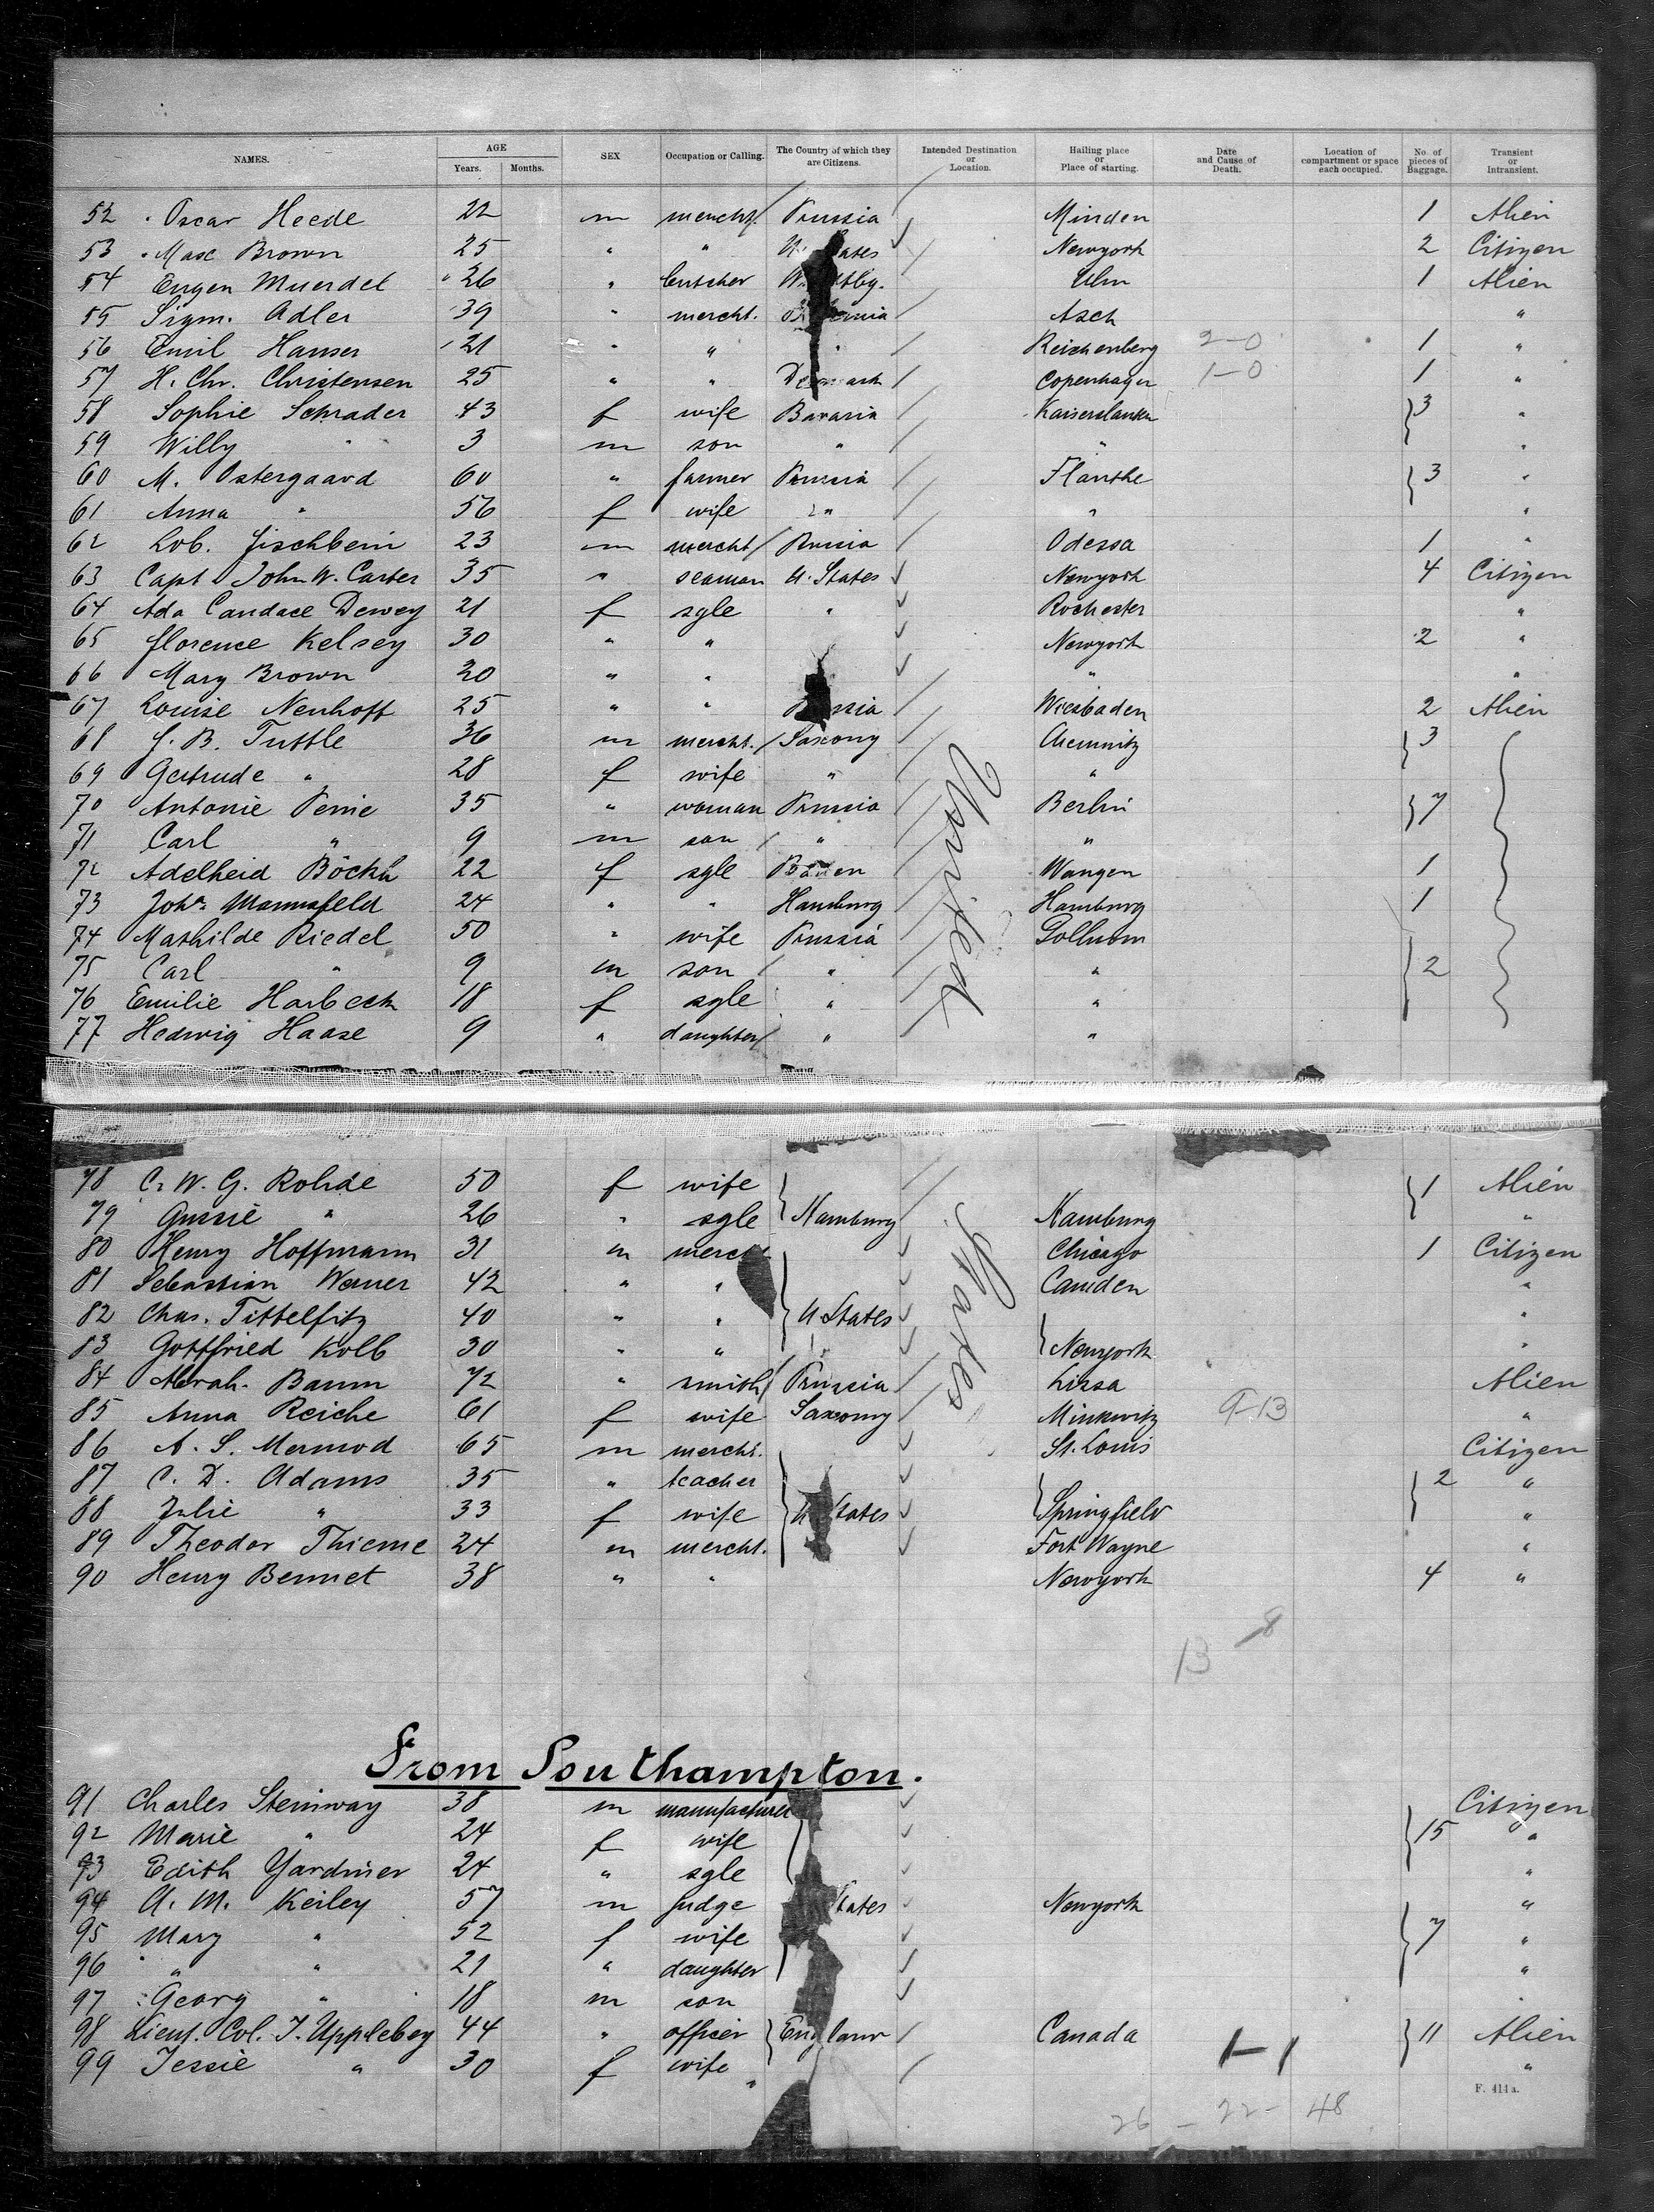 NAMES. AGE Years. Months. SEX Occupation or Calling. The Country of which they are Citizens. Intended Destination or Location. Hailing place or Place of starting. Date and Cause of Death. Location of compartment or space each occupied. No. of pieces of Baggage. Transient or Intransient.
52 Oscar Heede 22 m mercht. Prussia Minden 1 Alien
53 Max Brown 25 " " U. States Newyork 2 Citizen
54 Eugen Muerdel 26 " butcher Ulm 1 Alien
55 Sigm. Adler 39 " mercht. Asch "
56 Emil Hanser 21 " " " Reichenberg 2-0 1 "
57 H. Chr. Christensen 25 " " Denmark Copenhagen 1-0 1 "
58 Sophie Schrader 43 f wife Bavaria Kaiserslautern 3 "
59 Willy " 3 m son " " "
60 M. Ostergaard 60 " farmer Prussia 3 "
61 Anna " 56 f wife " " "
62 Lob. Fischbein 23 m mercht Russia Odessa 1 "
63 Capt John W. Carter 35 " seaman U. States Newyork 4 Citizen
64 Ada Candace Dewey 21 f sgle " Rochester "
65 Florence Kelsey 30 " " Newyork 2 "
66 Mary Brown 20 " " " "
67 Louise Neuhoff 25 " " Wiesbaden 2 Alien
68 J. B. Tuttle 36 m mercht. Saxony Chemnitz 3
69 Gertrude " 28 f wife " "
70 Antonie 35 " woman Prussia Berlin 7
71 Carl " 9 m son " "
72 Adelheid Böckh 22 f sgle Baden Wangen 1
73 Joha. Mannsfeld 24 " " Hamburg Hamburg 1
74 Mathilde Riedel 50 " wife Prussia Gollnow
75 Carl " 9 m son " " 2
76 Emilie Harbeck 18 f sgle " "
77 Hedwig Haase 9 " daughter " "
United States
78 C. W. G. Rohde 50 f wife 1 Alien
79 Gussie " 26 " sgle Hamburg Hamburg "
80 Henry Hoffmann 31 m mercht Chicago 1 Citizen
81 Sebastian Werner 42 " " Camden "
82 Chas. Tittelfitz 40 " " U. States "
83 Gottfried Kolb 30 " " Newyork "
84 Abrah. Baum 72 " smith Prussia Lissa Alien
85 Anna Reiche 61 f wife Saxony Minkwitz 9-13 "
86 A. S. Mermod 65 m mercht. St. Louis Citizen
87 C. D. Adams 35 " teacher 2 "
88 Julie " 33 f wife U. States Springfield "
89 Theodor Thieme 24 m mercht. Fort Wayne "
90 Henry Bennet 38 " " Newyork 4 "
13 8
From Southampton.
91 Charles Steinway 38 m manufacturer Citizen
92 Marie " 24 f wife 15 "
93 Edith Gardiner 24 " sgle "
94 A. M. Keiley 57 m judge States Newyork "
95 Mary " 52 f wife 7 "
96 " " 21 " daughter "
97 Georg " 18 m son "
98 Lieut. Col. T. Uppleby 44 " officer England Canada 1-1 11 Alien
99 Jessie " 30 f wife " "
F. 414 a.
26 - 22 - 48